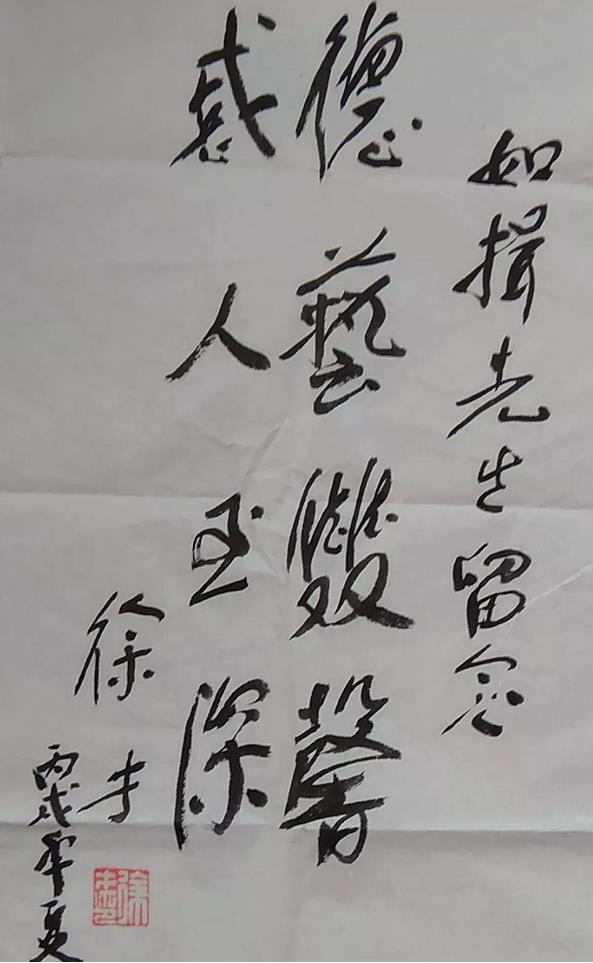 如揖先生留念
德藝雙馨
感人至深
徐
丙戌年夏